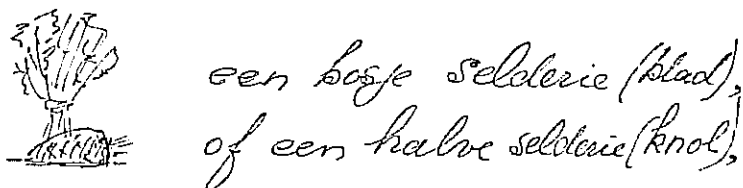 een bosje selderie (blad),
of een halve selderie (knol),